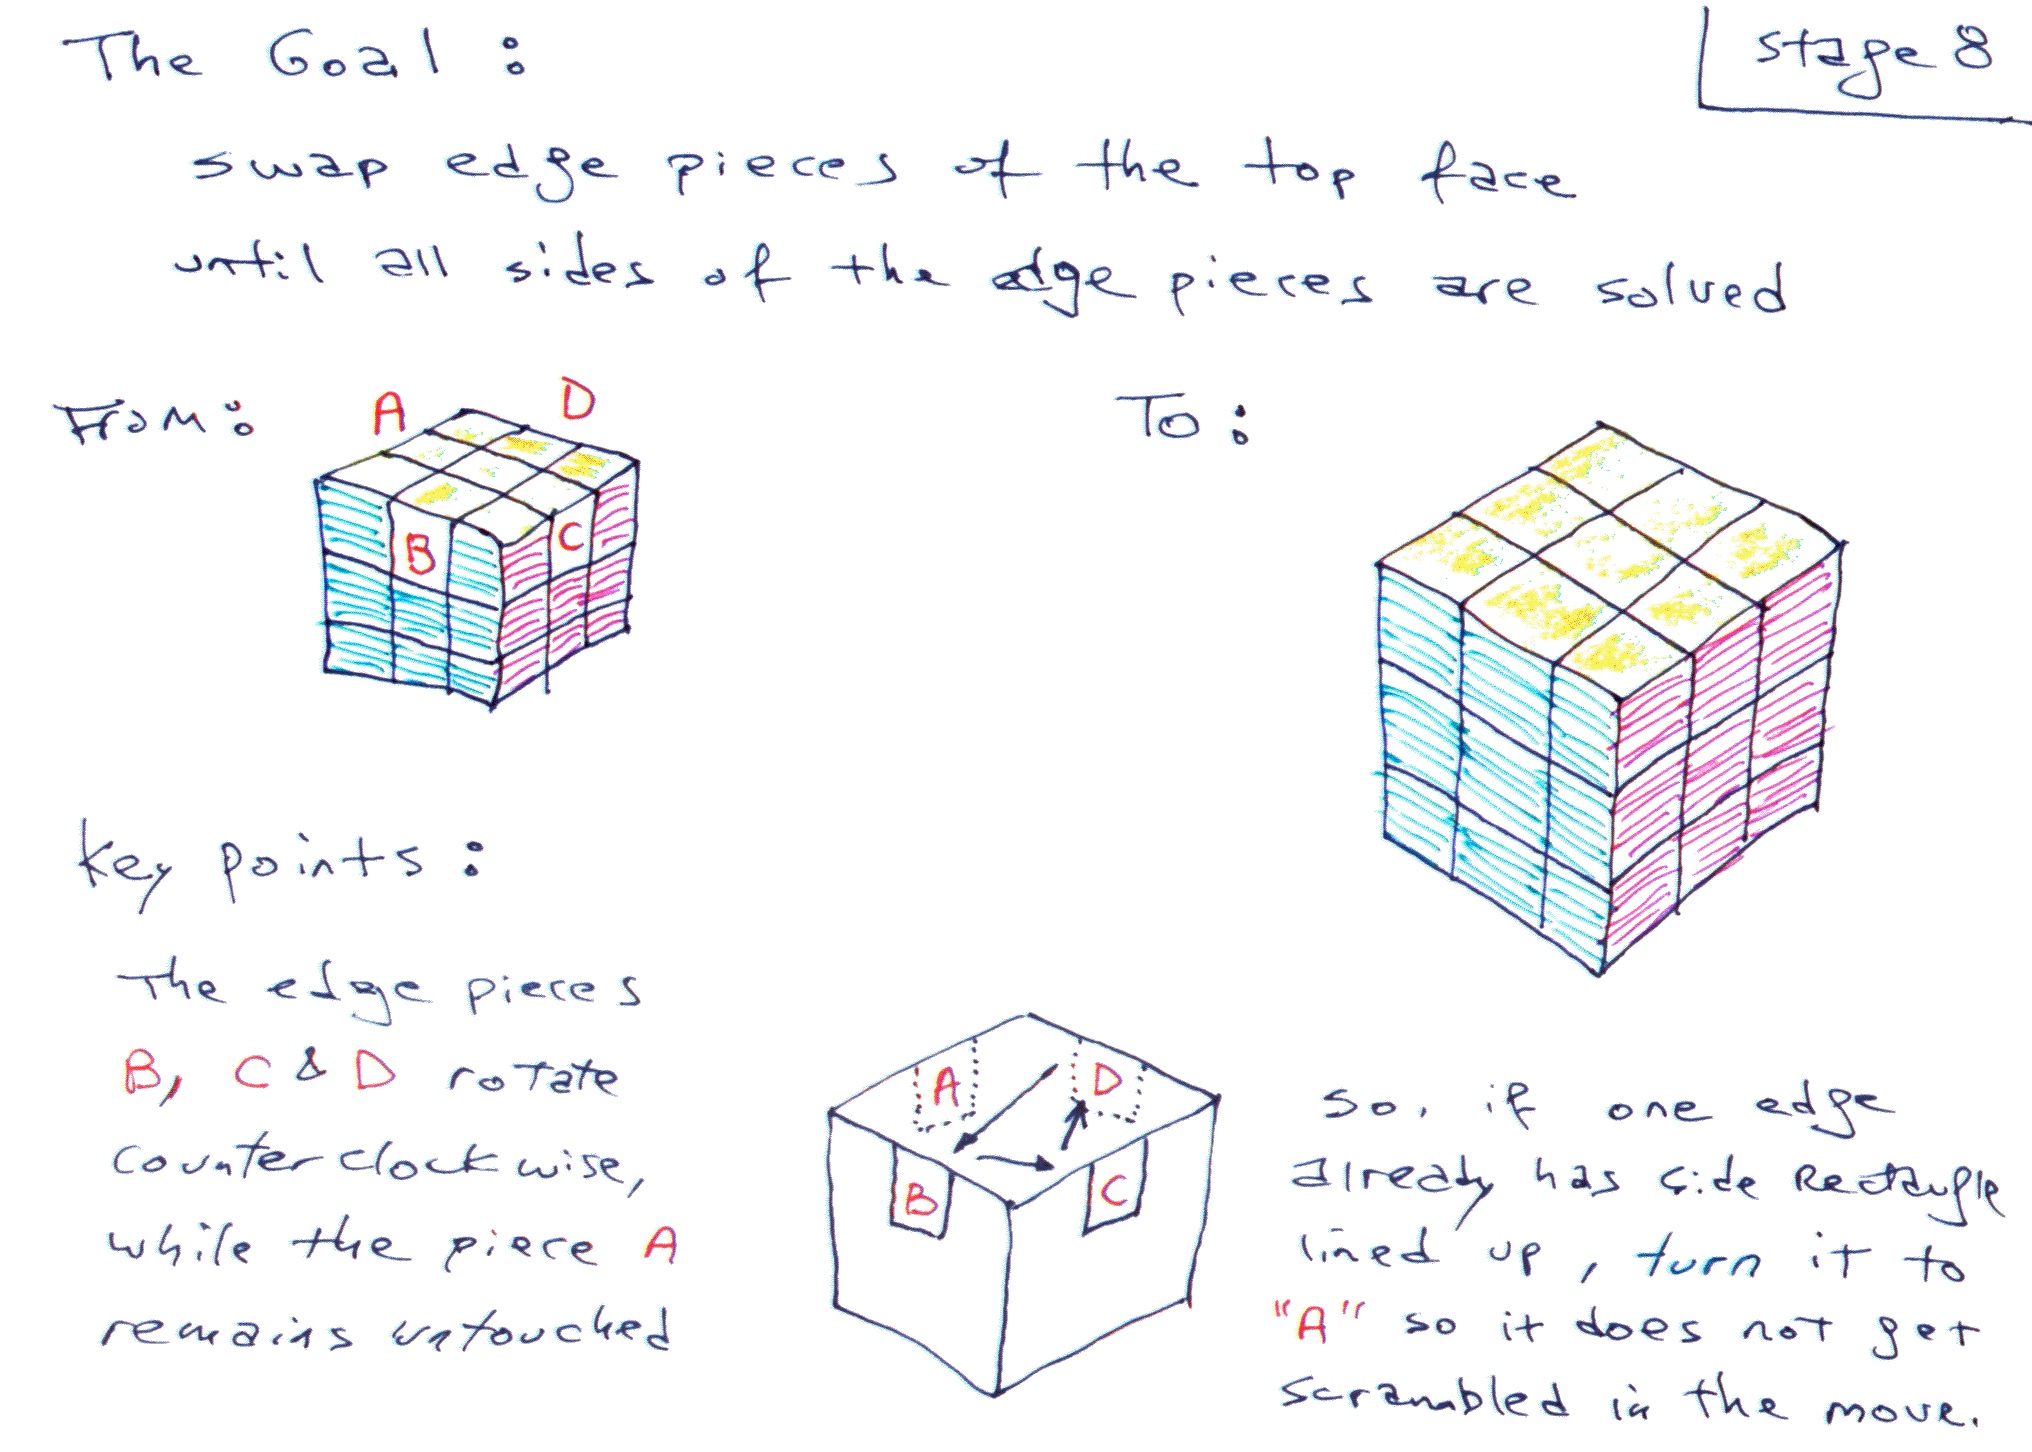 The Goal :
stage 8
swap edge pieces of the top face
until all sides of the edge pieces are solved
From :
A
D
B
C
To :
key points :
The edge pieces
B, C & D rotate
counterclockwise,
while the piece A
remains untouched
A
D
B
C
so, if one edge
already has side Rectangle
lined up, turn it to
"A" so it does not get
scrambled in the move.